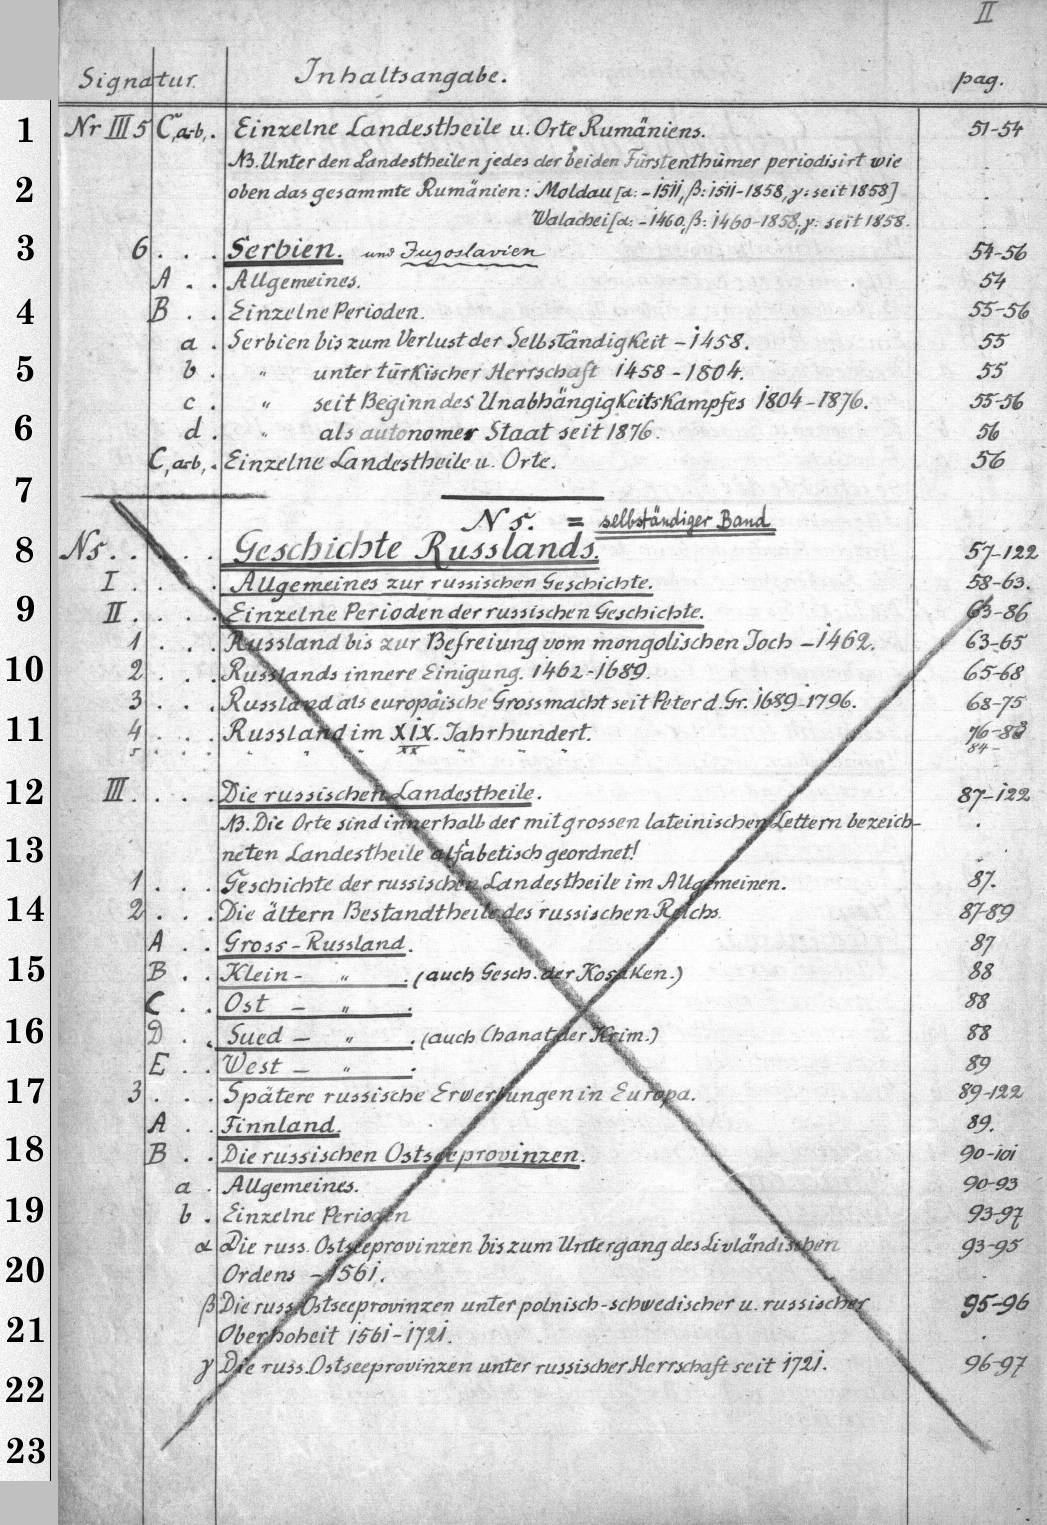 II
Signatur. Inhaltsangabe. pag.
1 Nr III 5 C, a-b, . Einzelne Landestheile u. Orte Rumäniens. 51-54
NB. Unter den Landestheilen jedes der beiden Fürstenthümer periodisirt wie
2 oben das gesammte Rumänien: Moldau [α: -1511, β: 1511-1858, γ: seit 1858]
Walachei [α: -1460, β: 1460-1858, γ: seit 1858.
3 6 . . . Serbien. und Jugoslavien 54-56
A . . Allgemeines. 54
4 B . . Einzelne Perioden. 55-56
a . Serbien bis zum Verlust der Selbständigkeit - 1458. 55
5 b . " unter türkischer Herrschaft 1458 - 1804. 55
c . " seit Beginn des Unabhängigkeitskampfes 1804-1876. 55-56
6 d . " als autonomer Staat seit 1876. 56
C, a-b, . Einzelne Landestheile u. Orte. 56
7
N 5. = selbständiger Band
8 N5 . . . . . Geschichte Russlands. 57-122
I . . . . Allgemeines zur russischen Geschichte. 58-63.
9 II . . . . Einzelne Perioden der russischen Geschichte. 63-86
1 . . . Russland bis zur Befreiung vom mongolischen Joch - 1462. 63-65
10 2 . . . Russlands innere Einigung. 1462-1689. 65-68
3 . . . Russland als europäische Grossmacht seit Peter d. Gr. 1689-1796. 68-75
11 4 . . . Russland im XIX. Jahrhundert. 76-83
5 . . . " " XX " " 84-
12 III . . . . Die russischen Landestheile. 87-122
NB. Die Orte sind innerhalb der mit grossen lateinischen Lettern bezeich-
13 neten Landestheile alfabetisch geordnet!
1 . . . Geschichte der russischen Landestheile im Allgemeinen. 87.
14 2 . . . Die ältern Bestandtheile des russischen Reichs. 87-89
A . . Gross-Russland. 87
15 B . . Klein- " . (auch Gesch. der Kosaken.) 88
C . . Ost - " . 88
16 D . . Sued - " . (auch Chanat der Krim.) 88
E . . West - " . 89
17 3 . . . Spätere russische Erwerbungen in Europa. 89-122
A . . Finnland. 89.
18 B . . Die russischen Ostseeprovinzen. 90-101
a . Allgemeines. 90-93
19 b . Einzelne Perioden 93-97
α Die russ. Ostseeprovinzen bis zum Untergang des Livländischen 93-95
20 Ordens - 1561.
β Die russ. Ostseeprovinzen unter polnisch-schwedischer u. russischer 95-96
21 Oberhoheit 1561-1721.
γ Die russ. Ostseeprovinzen unter russischer Herrschaft seit 1721. 96-97
22
23